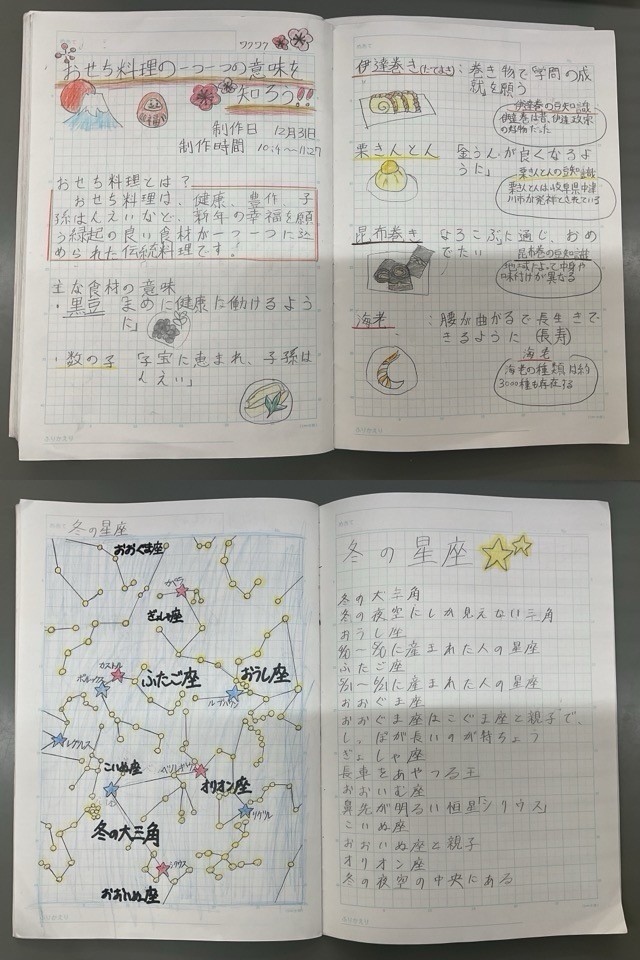 ワクワク
おせち料理の一つ一つの意味を
知ろう!!
制作日 12月31日
制作時間 10:4～11:27
おせち料理とは?
おせち料理は、健康、豊作、子
孫はんえいなど、新年の幸福を願
う縁起の良い食材が一つ一つに込
められた伝統料理です!
主な食材の意味
・黒豆 まめに健康に働けるよう
に」
・数の子 「子宝に恵まれ、子孫は
んえい」
伊達巻き(だてまき):巻き物で「学問の成
就」を願う
伊達巻の豆知識
伊達巻は昔、伊達政宗
の好物だった
栗きんとん 「金うんが良くなるよ
うに」
栗きんとんの豆知識
栗きんとんは、岐阜県中津
川市が発祥とされている
昆布巻き 「よろこぶ」に通じ、おめ
でたい
昆布巻の豆知識
地いきによって中身や
味付けが異なる
海老 :腰が曲がるで長生きで
きるように (長寿)
海老
海老の種類は約
3000種も存在する
冬の星座
おおぐま座
カペラ
ぎょしゃ座
カストル
ポルックス
ふたご座
おうし座
アルデバラン
レグルス
こいぬ座
ベテルギウス
オリオン座
リゲル
冬の大三角
シリウス
おおいぬ座
冬の星座
冬の大三角
冬の夜空にしか見えない三角
おうし座
に産まれた人の星座
ふたご座
に産まれた人の星座
おおぐま座
おおぐま座はこぐま座と親子で、
しっぽが長いのが特ちょう
ぎょしゃ座
長車をあやつる王
おおいむ座
鼻先が明るい恒星「シリウス」
こいぬ座
おおいぬ座と親子
オリオン座
冬の夜空の中央にある